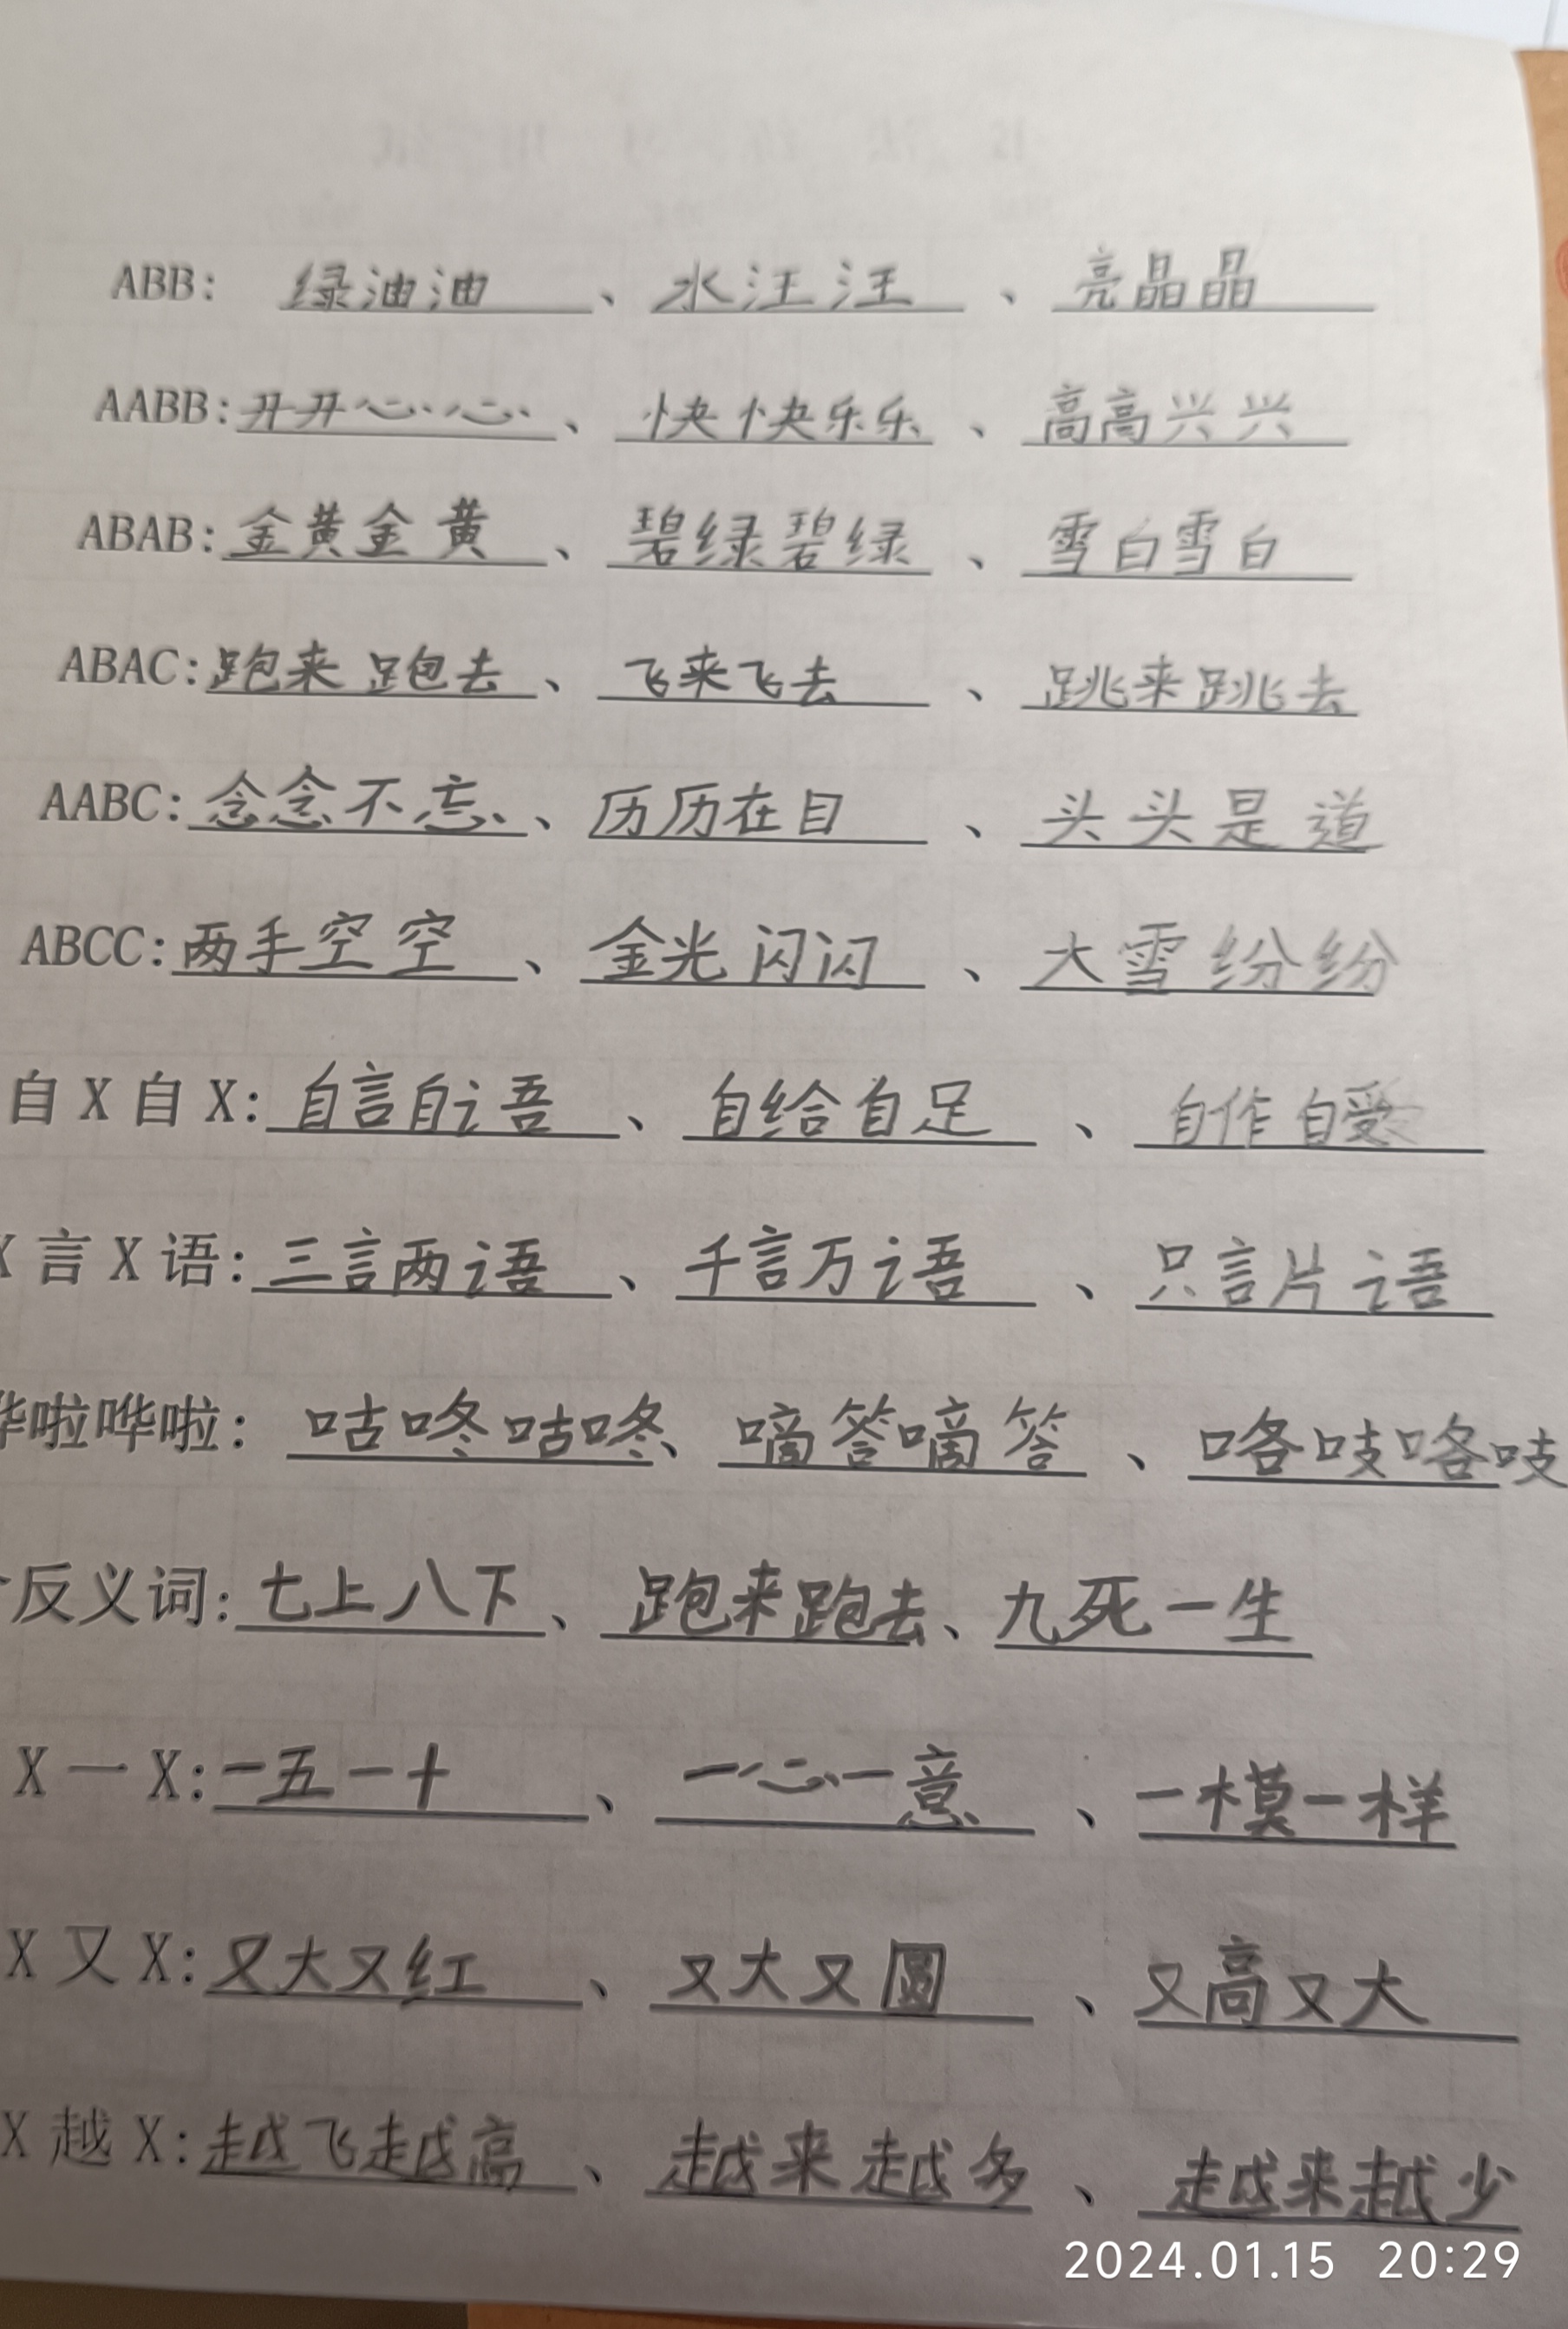 ABB: 绿油油、水汪汪、亮晶晶
AABB:开开心心、快快乐乐、高高兴兴
ABAB:金黄金黄、碧绿碧绿、雪白雪白
ABAC:跑来跑去、飞来飞去、跳来跳去
AABC:念念不忘、历历在目、头头是道
ABCC:两手空空、金光闪闪、大雪纷纷
自X自X:自言自语、自给自足、自作自受
X言X语:三言两语、千言万语、只言片语
哗啦哗啦:咕咚咕咚、嘀答嘀答、咯吱咯吱
反义词:七上八下、跑来跑去、九死一生
X一X:一五一十、一心一意、一模一样
X又X:又大又红、又大又圆、又高又大
X越X:越飞越高、越来越多、越来越少
2024.01.15 20:29